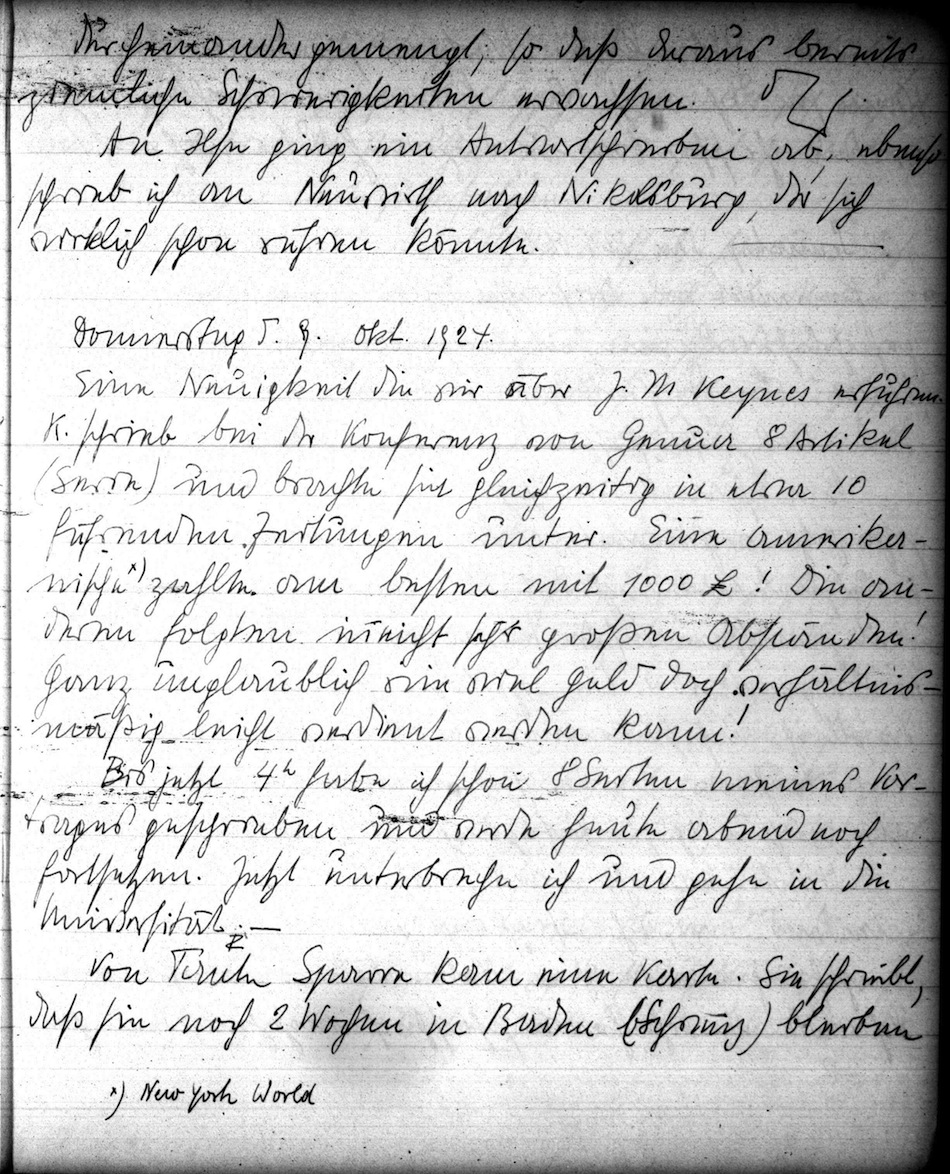 durcheinandergemengt, so daß daraus bereits
ziemliche Schwierigkeiten erwachsen.
An ging ein Antwortschreiben ab, ebenso
schrieb ich an Neuwirth nach Nikolsburg, der sich
wirklich schon rühren könnte.
Donnerstag d. 9. Okt. 1924.
Eine Neuigkeit die wir über J. M Keynes erfuhren.
K. schrieb bei der Konferenz von Genua 8 Artikel
(Serie) und brachte sie gleichzeitig in etwa 10
führenden Zeitungen unter. Eine amerika-
nische x) zahlte am besten mit 1000 £! Die an-
deren folgten in nicht sehr großen Abständen!
Ganz unglaublich wie viel Geld doch verhältnis-
mäßig leicht verdient werden kann!
Bis jetzt 4h habe ich schon 8 Seiten meines Vor-
trages geschrieben und werde heute abend noch
fortsetzen. Jetzt unterbreche ich und gehe in die
Universität. —
Von Tante Spann kam eine Karte. Sie schreibt,
daß sie noch 2 Wochen in Baden (Schweiz) bleiben
x) New York World